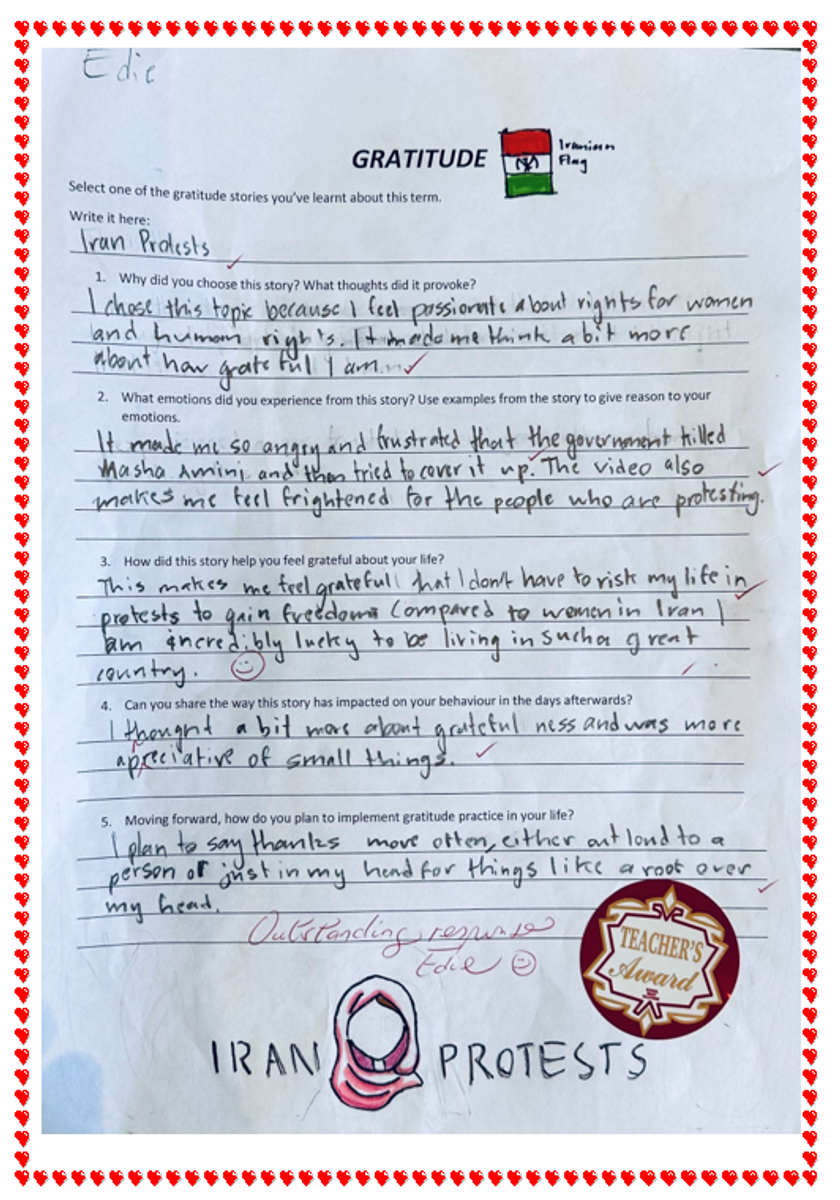 Edie
GRATITUDE
Iranian
Flag
Select one of the gratitude stories you've learnt about this term.
Write it here:
Iran Protests
1. Why did you choose this story? What thoughts did it provoke?
I chose this topic because I feel passionate about rights for women
and human rights. It made me think a bit more
about how grateful I am.
2. What emotions did you experience from this story? Use examples from the story to give reason to your
emotions.
It made me so angry and frustrated that the government killed
Masha Amini and then tried to cover it up. The video also
makes me feel frightened for the people who are protesting.
3. How did this story help you feel grateful about your life?
This makes me feel gratefull that I don't have to risk my life in
protests to gain freedom. Compared to women in Iran I
am incredibly lucky to be living in such a great
country.
4. Can you share the way this story has impacted on your behaviour in the days afterwards?
I thought a bit more about grateful ness and was more
apreciative of small things.
5. Moving forward, how do you plan to implement gratitude practice in your life?
I plan to say thanks more often, either out loud to a
person or just in my head for things like a roof over
my head.
Outstanding response
Edie
TEACHER'S
Award
IRAN PROTESTS